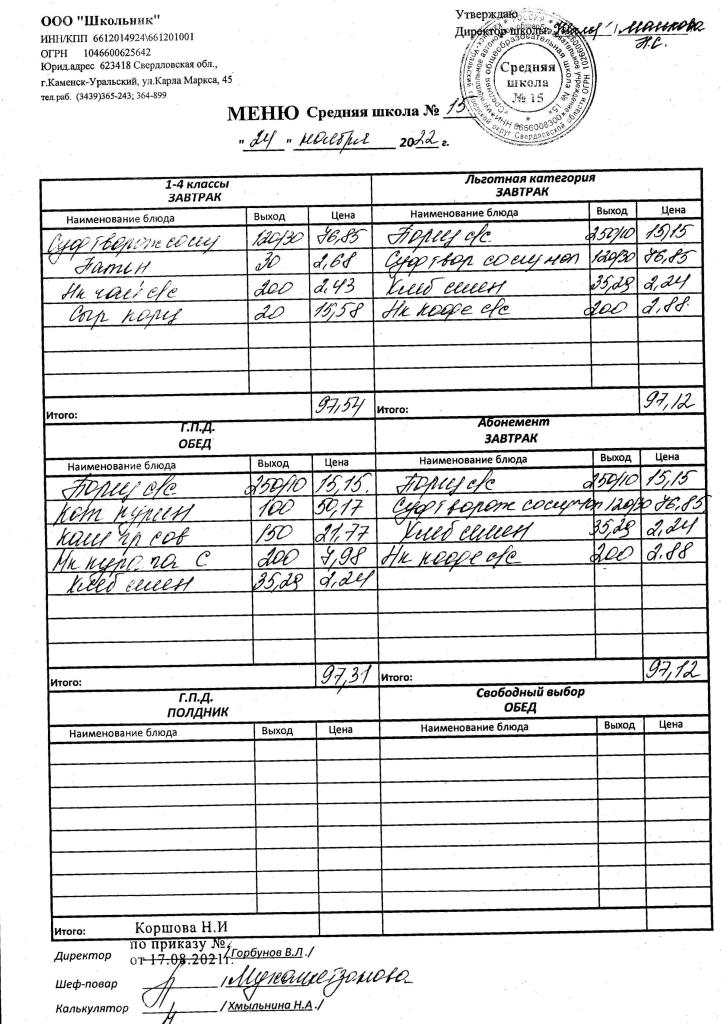 ООО "Школьник"
ИНН/КПП 6612014924\661201001
ОГРН 1046600625642
Юрид.адрес 623418 Свердловская обл.,
г.Каменск-Уральский, ул.Карла Маркса, 45
тел.раб. (3439)365-243; 364-899
Утверждаю
Директор школы
Н.С.
Средняя
школа
№ 15
МЕНЮ Средняя школа № 15
" 24 " ноября 2022 г.
1-4 классы
ЗАВТРАК
Наименование блюда Выход Цена
Суф творож со сгущ 120/30 76,85
Батон 30 2,68
Нк чай с/с 200 2,43
Сыр порц 20 15,58
Итого: 97,54
Льготная категория
ЗАВТРАК
Наименование блюда Выход Цена
Борщ с/с 250/10 15,15
Суф твор со сгущ мол 120/30 76,85
Хлеб 35,29 2,24
Нк кофе с/с 200 2.88
Итого: 97,12
Г.П.Д.
ОБЕД
Наименование блюда Выход Цена
Борщ с/с 250/10 15,15
Кот курин 100 50,17
Каш гр 150 21,77
200 7,98
Хлеб 35,29 2,24
Итого: 97,31
Абонемент
ЗАВТРАК
Наименование блюда Выход Цена
Борщ с/с 250/10 15,15
Суф творож со сгущ мол 120/30 76,85
Хлеб 35,29 2,24
Нк кофе с/с 200 2.88
Итого: 97,12
Г.П.Д.
ПОЛДНИК
Наименование блюда Выход Цена
Итого:
Свободный выбор
ОБЕД
Наименование блюда Выход Цена
Коршова Н.И
по приказу №
от 17.08.2021г.
Директор /Горбунов В.Л./
Шеф-повар / Мухаметзянова
Калькулятор / Хмыльнина Н.А./